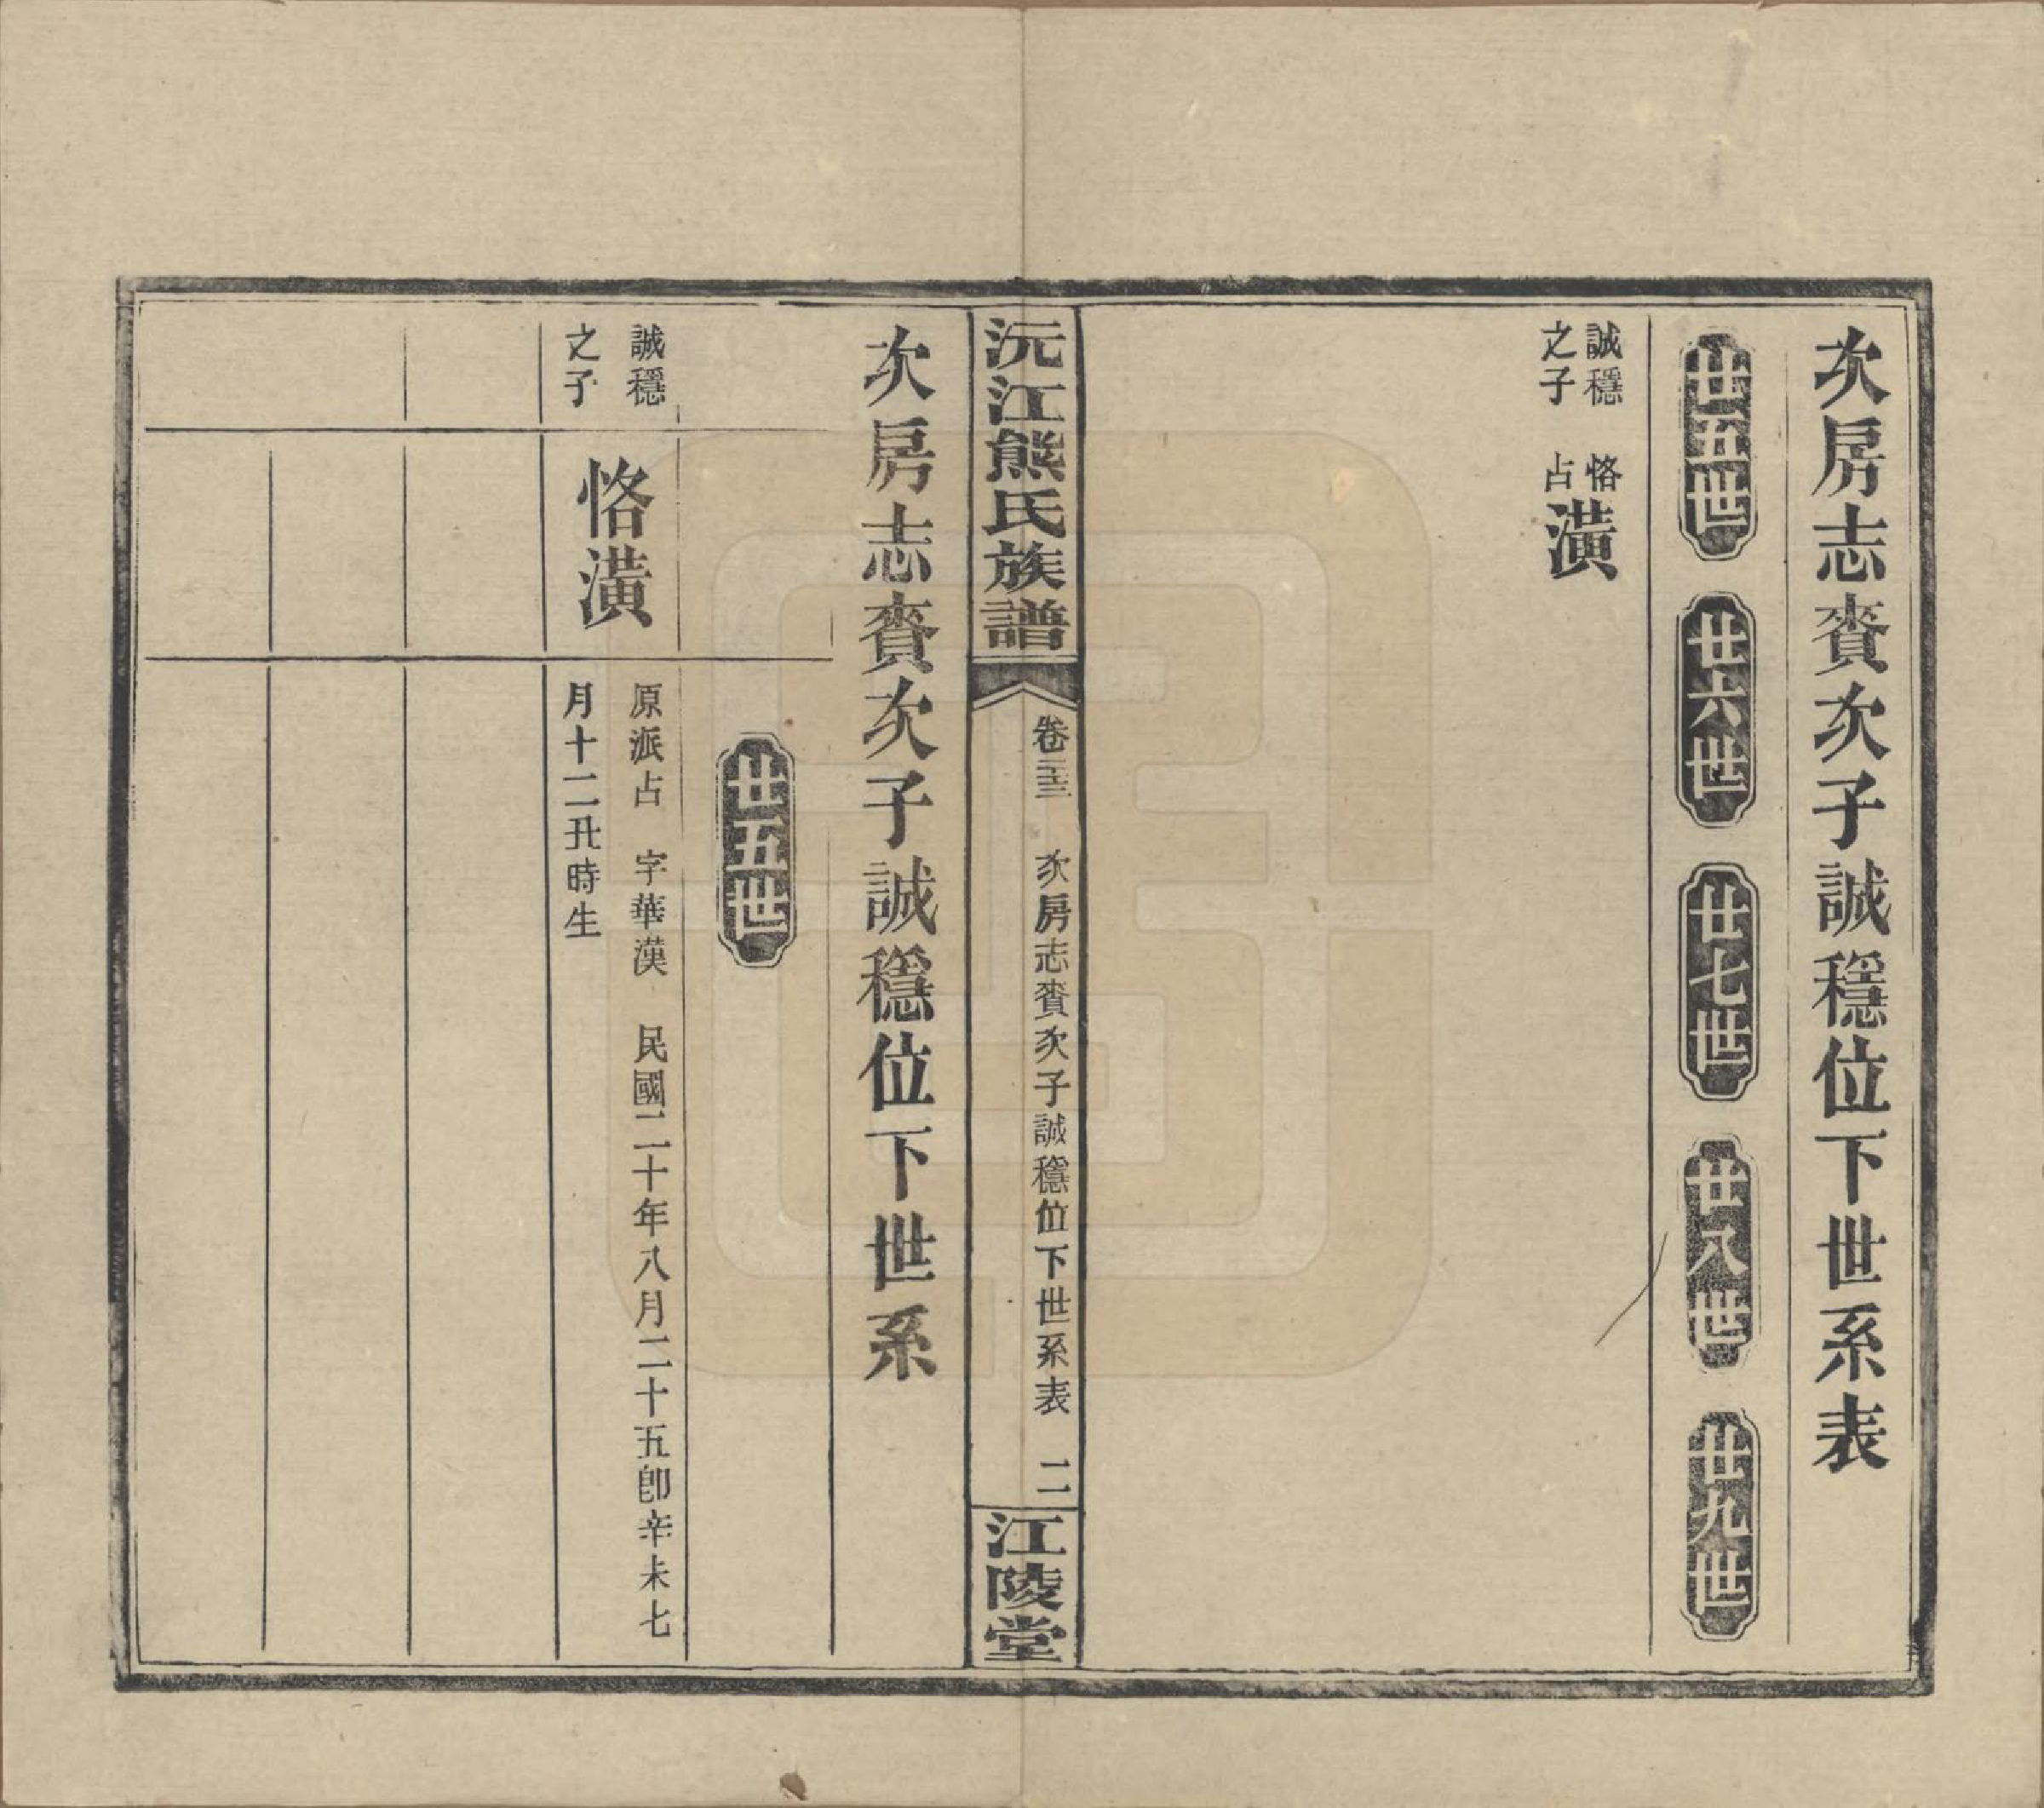 次房志賚次子誠穩位下世系表
廿五世
廿六世
廿七世
廿八世
廿九世
誠穩之子
恪占潢
沅江熊氏族譜
卷三三
次房志賚次子誠穩位下世系表
二
江陵堂
次房志賚次子誠穩位下世系
廿五世
誠穩
之子
恪潢
原派占 字華漢 民國二十年八月二十五卽辛未七
月十二丑時生